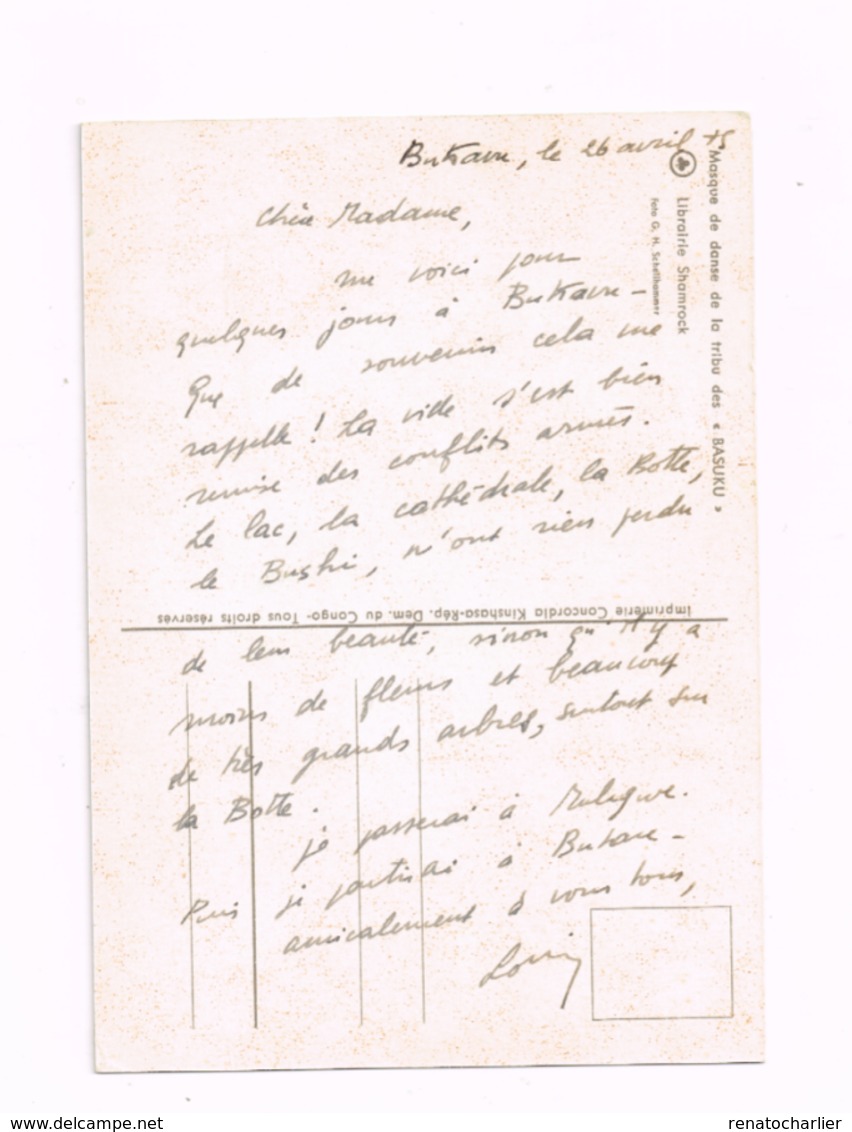 Bukavu, le 26 avril 75
Chère Madame,
me voici pour
quelques jours à Bukavu -
Que de souvenirs cela me
rappelle ! La ville s'est bien
remise des conflits armés.
Le lac, la cathédrale, la Botte,
le Bushi, n'ont rien perdu
de leur beauté, sinon qu'il y a
moins de fleurs et beaucoup
de très grands arbres, surtout sur
la Botte.
je passerai à Mulungwe.
Puis je partirai à Butare -
amicalement à vous tous,
Masque de danse de la tribu des « BASUKU »
Librairie Shamrock
Foto G. H. Schellhammer
Imprimerie Concordia Kinshasa-Rép. Dem. du Congo- Tous droits réservés
delcampe.net
renatocharlier